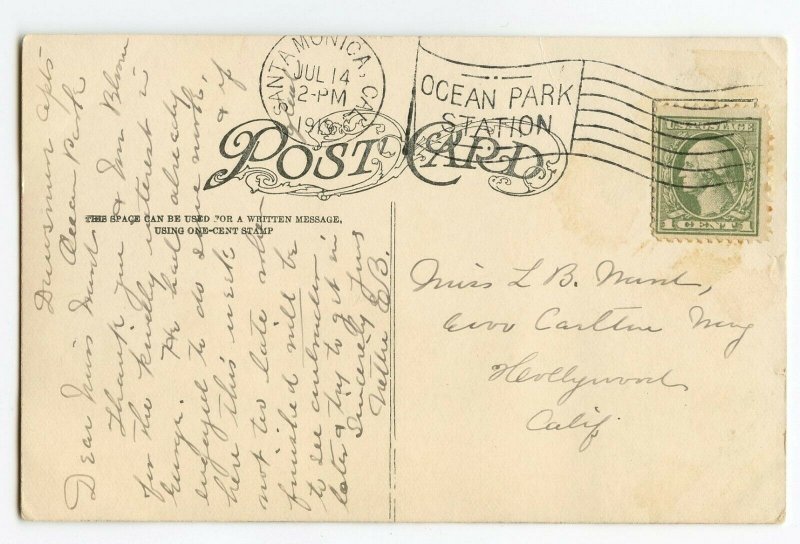 SANTA MONICA, CAL.
JUL 14
2-PM
OCEAN PARK
STATION
POST CARD
U.S. POSTAGE
1 CENT 1
THIS SPACE CAN BE USED FOR A WRITTEN MESSAGE,
USING ONE-CENT STAMP
Apts
Ocean Park
Dear Miss
Thank you & Mr Blow
for the kindly interest in
George. He had already
engaged to do some work,
here this week & if
not too late when
finished will be
to see
later & try to get in
Sincerely yours
Nettie E B.
Miss L. B.
6000 Carlton Way
Hollywood
Calif